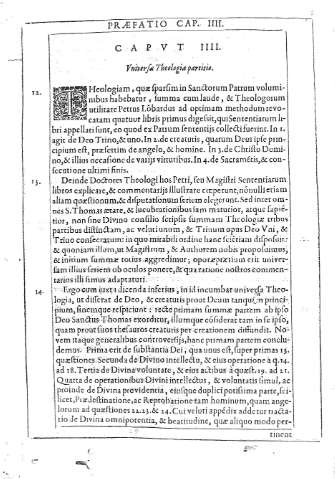 PRÆFATIO CAP. IIII.
CAPVT IIII.
Vniversæ Theologiæ partitio.
12. THeologiam, quæ sparsim in Sanctorum Patrum volumi-
nibus habebatur, summa cum laude, & Theologorum
utilitate Petrus Lõbardus ad optimam methodum revo-
catam quatuor libris primus digessit, qui Sententiarum li-
bri appellati sunt, eo quod ex Patrum sententijs collecti fuerint. In 1.
agit de Deo Trino, & uno. In 2. de creaturis, quarum Deus ipse prin-
cipium est, præsertim de angelo, & homine. In 3. de Christo Domi-
no, & illius occasione de varijs virtutibus. In 4. de Sacramẽtis, & con-
secutione ultimi finis.
13. Deinde Doctores Theologi hos Petri, seu Magistri Sententiarum
libros explicare, & commentarijs illustrare cœperunt, nonnulli etiam
aliam quæstionum, & disputationum seriem elegerunt. Sed inter om-
nes S. Thomas ætate, & lucubrationibus iam maturior, atque sapiẽ-
tior, non sine Divino consilio scriptis summam Theologiæ tribus
partibus distinctam, ac
& quoniam illum, ut Magistrum, & Authorem nobis proponimus,
& initium summæ totius aggredimur; operæ pretium erit univer-
sam illius seriem ob oculos ponere, & qua ratione nostros commen-
tarios illi simus adaptaturi.
14. Ergo cum iuxta dicenda inferius, in id incumbat universa Theo-
logia, ut disserat de Deo, & creaturis prout Deum tanquam princi-
pium, finemque respiciunt: recte primam summæ partem ab ipso
Deo Sanctus Thomas exorditur, illumque cõsiderat tam in se ipso,
quam prout suos thesauros creaturis per creationem diffundit. No-
vem itaque generalibus controversijs, hanc primam partem conclu-
demus. Prima erit de substantia Dei, qua unus est, super primas 13.
quæstiones. Secunda de Divino intellectu, & eius operatione à q. 14.
ad 18. Tertia de Divina voluntate, & eius actibus à quæst. 19. ad 21.
Quarta de operationibus Divini intellectus, & voluntatis simul, ac
proinde de Divina providentia, eiusque duplici potissima parte, sci-
licet, Prædestinatione, ac Reprobatione tam hominum, quam ange-
lorum ad quæstiones 22. 23. & 24. Cui veluti appẽdix addetur tracta-
tio de Divina omnipotentia, & beatitudine, quæ aliquo modo per-
tinent